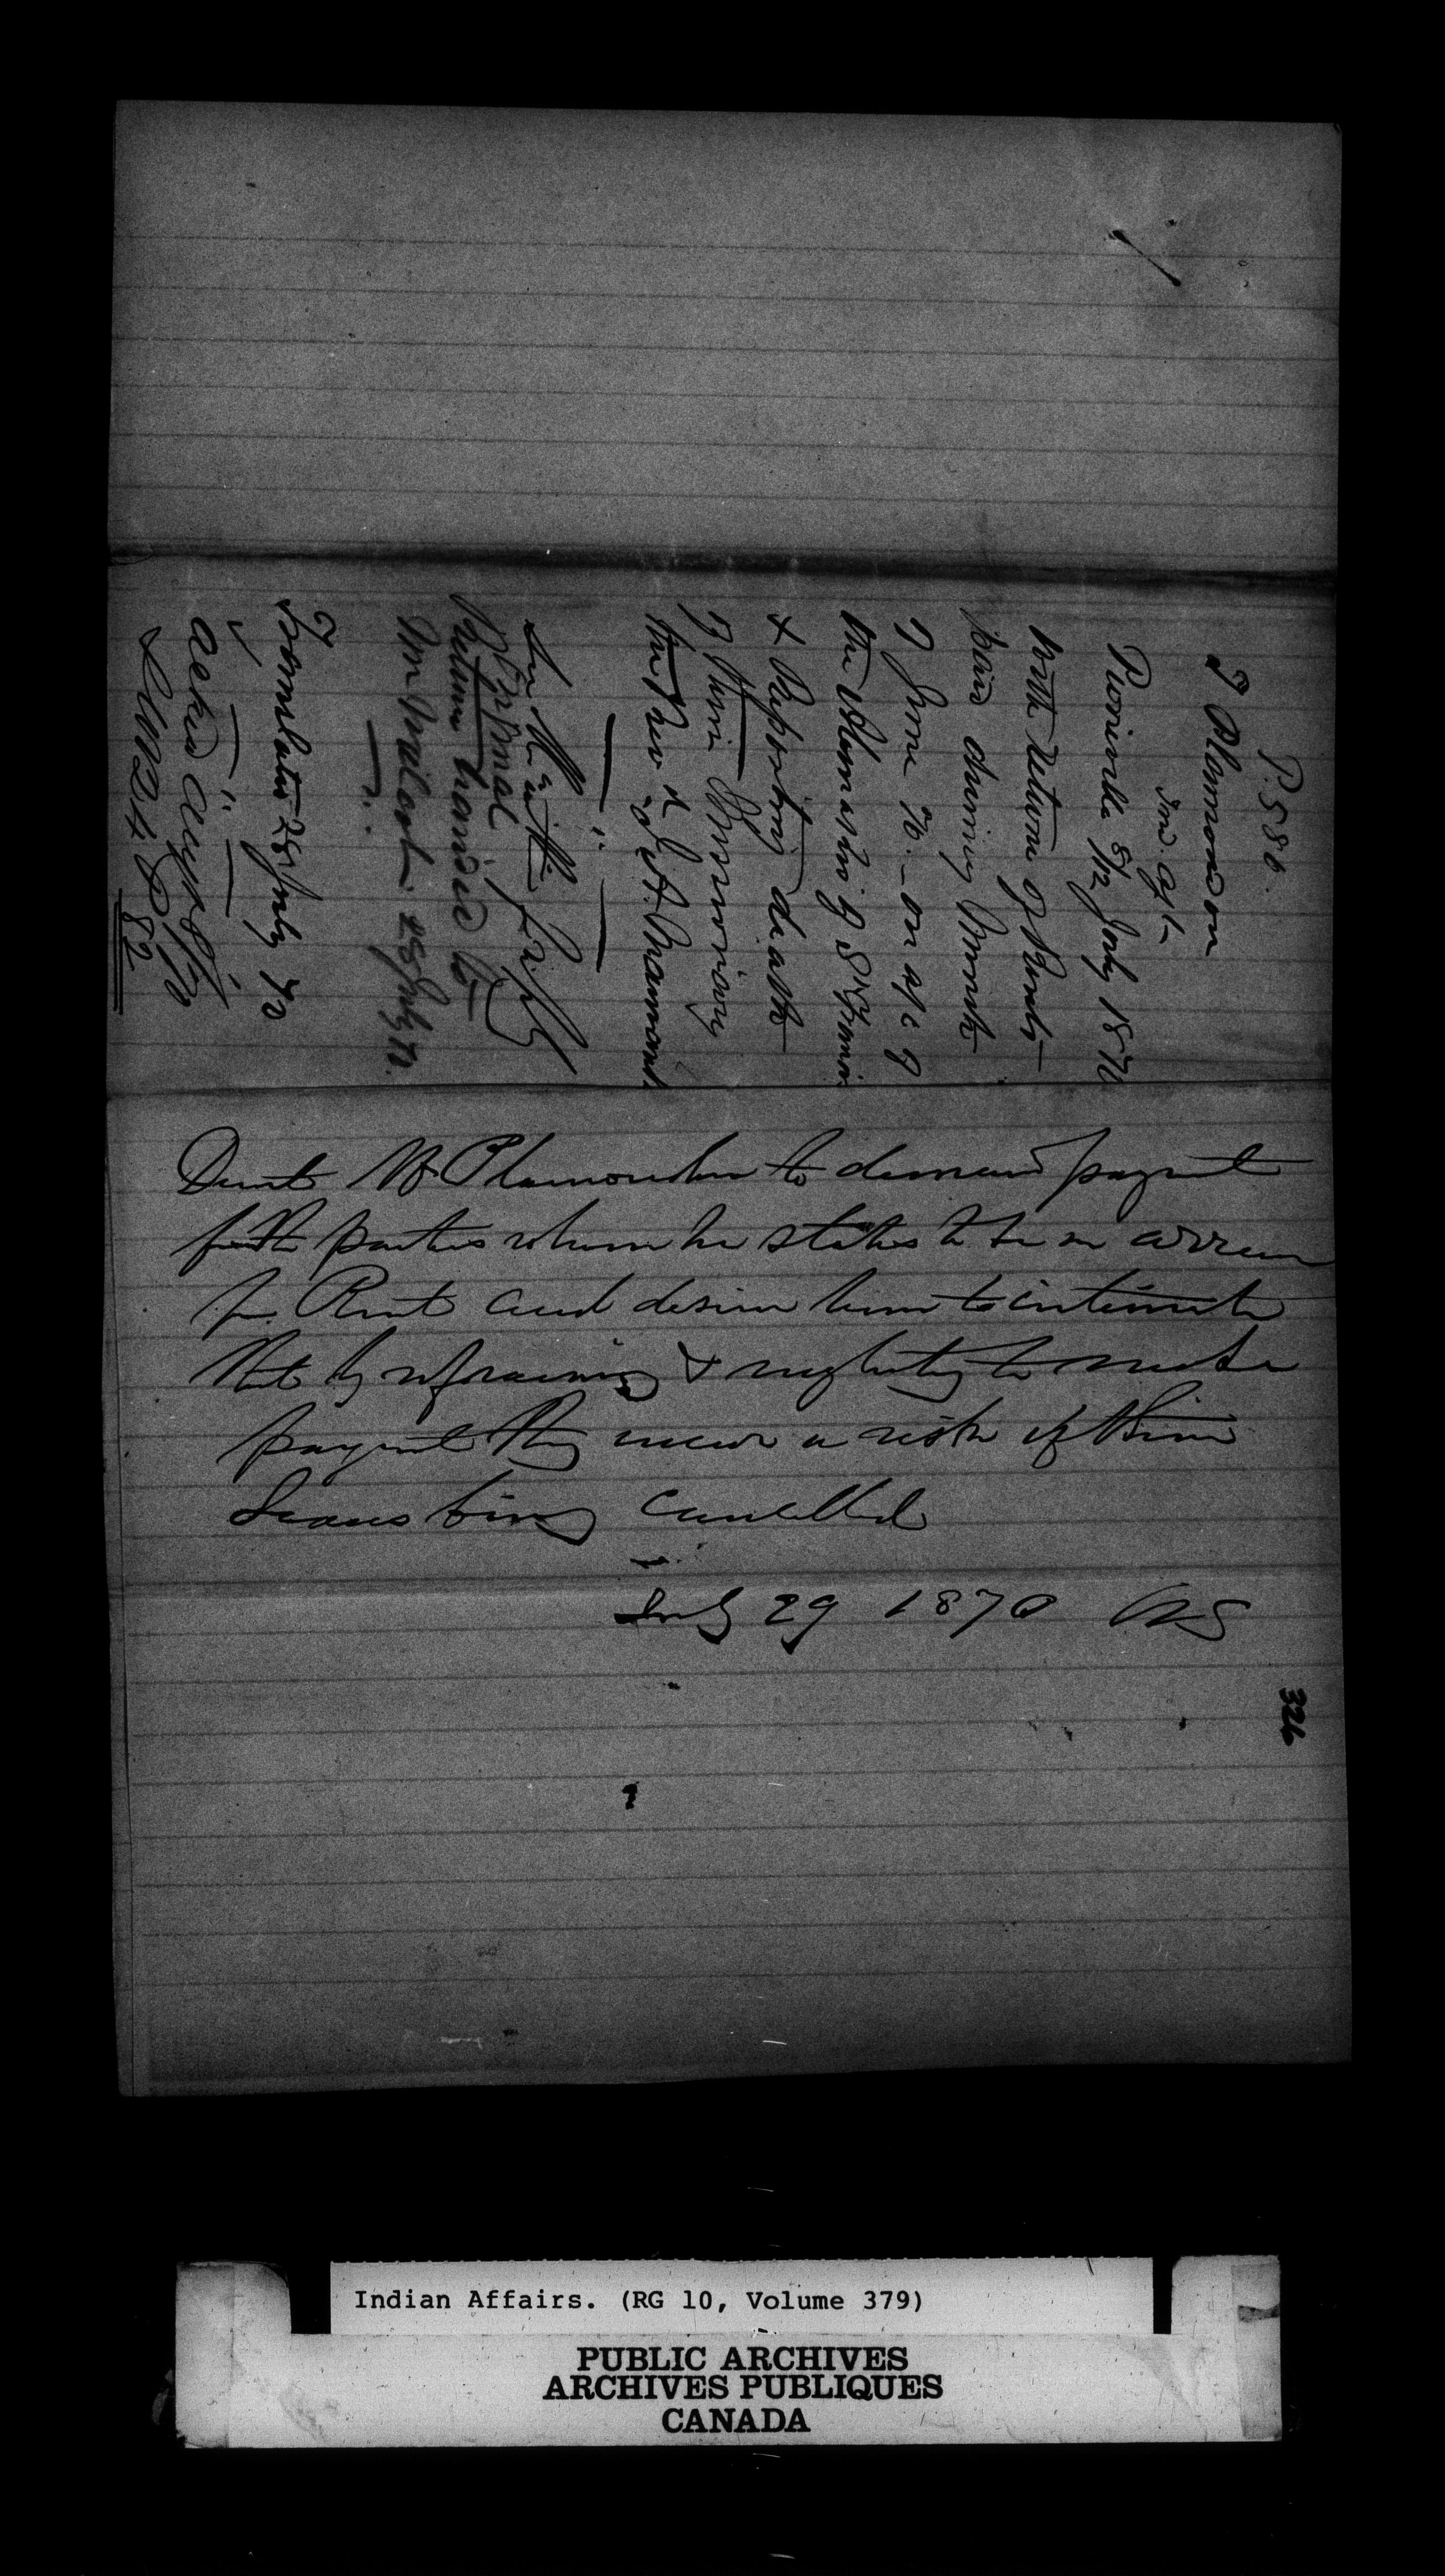 P. 586.
T Plamondon
Ind. Agt.
Pierreville 8/12 July 1870
With Return of Rents
paid during Months
of June 70 - on a/c of
the Abenakis of St Francis
& Reporting death
of Missionary
the Revd
Return handed to
28 July 70
Translated 28 July 70
Direct Mr Plamondon to demand payment
from the parties whom he states to be in arrear
for Rent and desire him to intimate
that by refusing & neglecting to make
payment they incur a risk of their
Leases being cancelled
July 29 1870
326
Indian Affairs. (RG 10, Volume 379)
PUBLIC ARCHIVES
ARCHIVES PUBLIQUES
CANADA